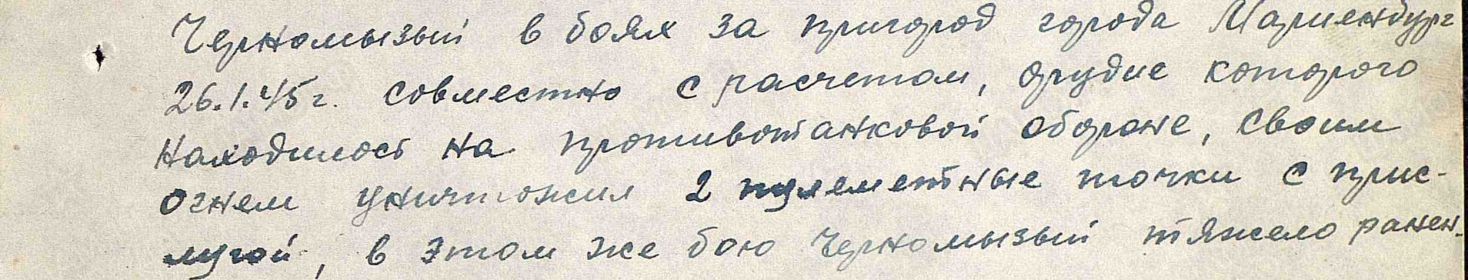 Черномызый в боях за пригород города Мариенбург
26.1.45г. совместно с расчетом, орудие которого
находилось на противотанковой обороне, своим
огнем уничтожил 2 пулеметные точки с прис-
лугой, в этом же бою Черномызый тяжело ранен.